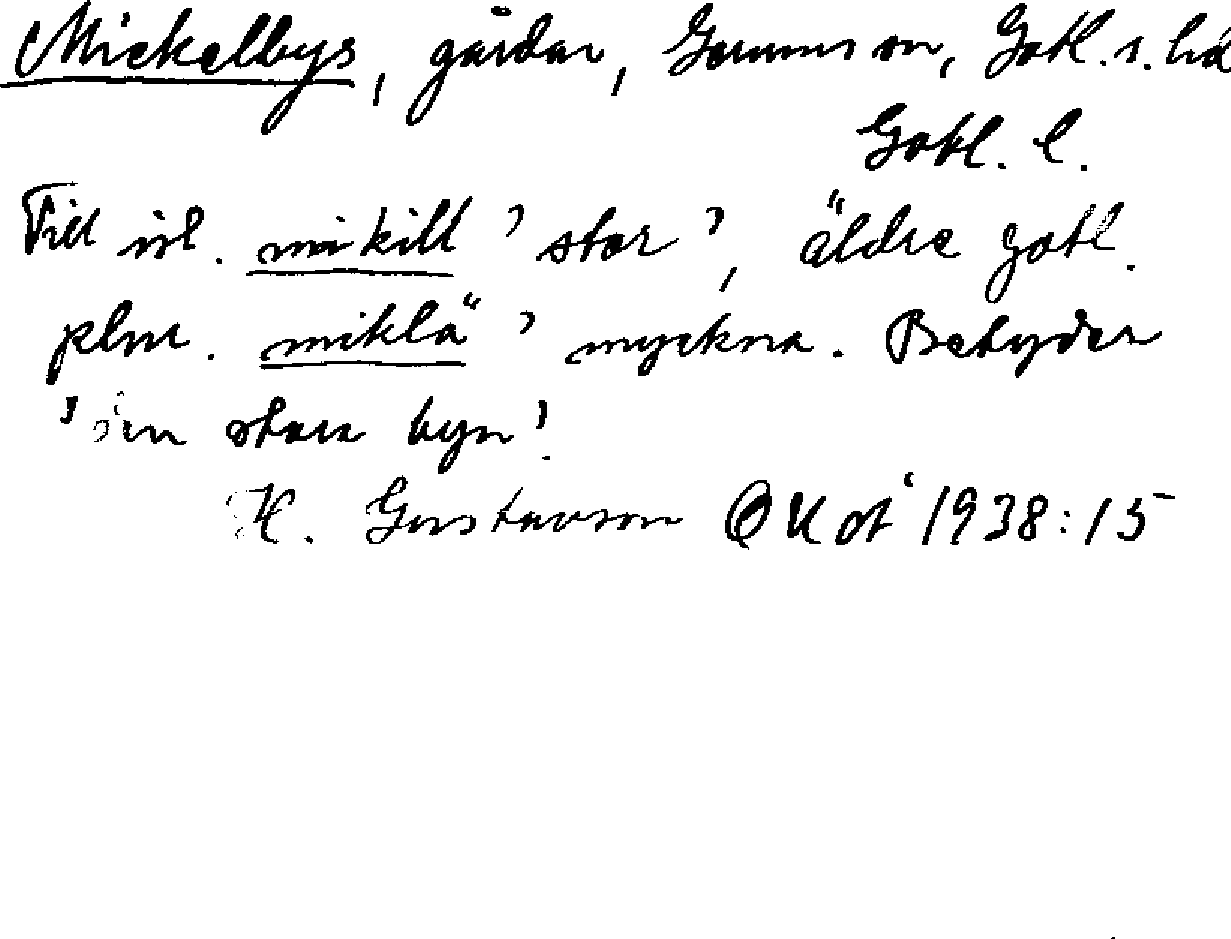 Mickelbys, gårdar, Gamms sn, Gotl. s. hd
Gotl. l.
Till isl. mikill 'stor', äldre gotl.
plur. miklä" ' myckna. Betyder
'den stora byn'.
H. Gustavson 1938:15